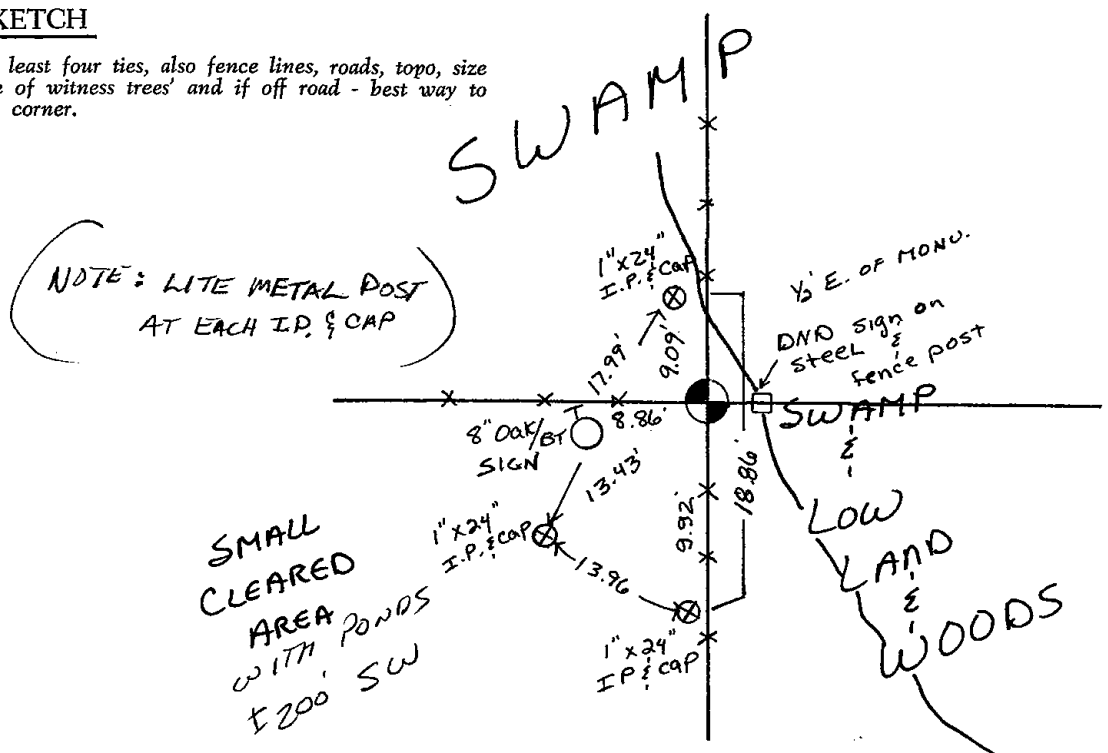 KETCH
least four ties, also fence lines, roads, topo, size
of witness trees' and if off road - best way to
corner.
SWAMP
NOTE: LITE METAL POST
AT EACH I.P. & CAP
1"x24"
I.P. & CAP
17.99'
9.09'
½' E. OF MONU.
DNR sign on
steel &
fence post
8" Oak/BT
SIGN
8.86'
SWAMP
&
LOW
LAND
&
WOODS
13.43'
9.92'
18.86'
1"x24"
I.P. & CAP
13.96
1"x24"
I.P. & CAP
SMALL
CLEARED
AREA
WITH PONDS
± 200' SW